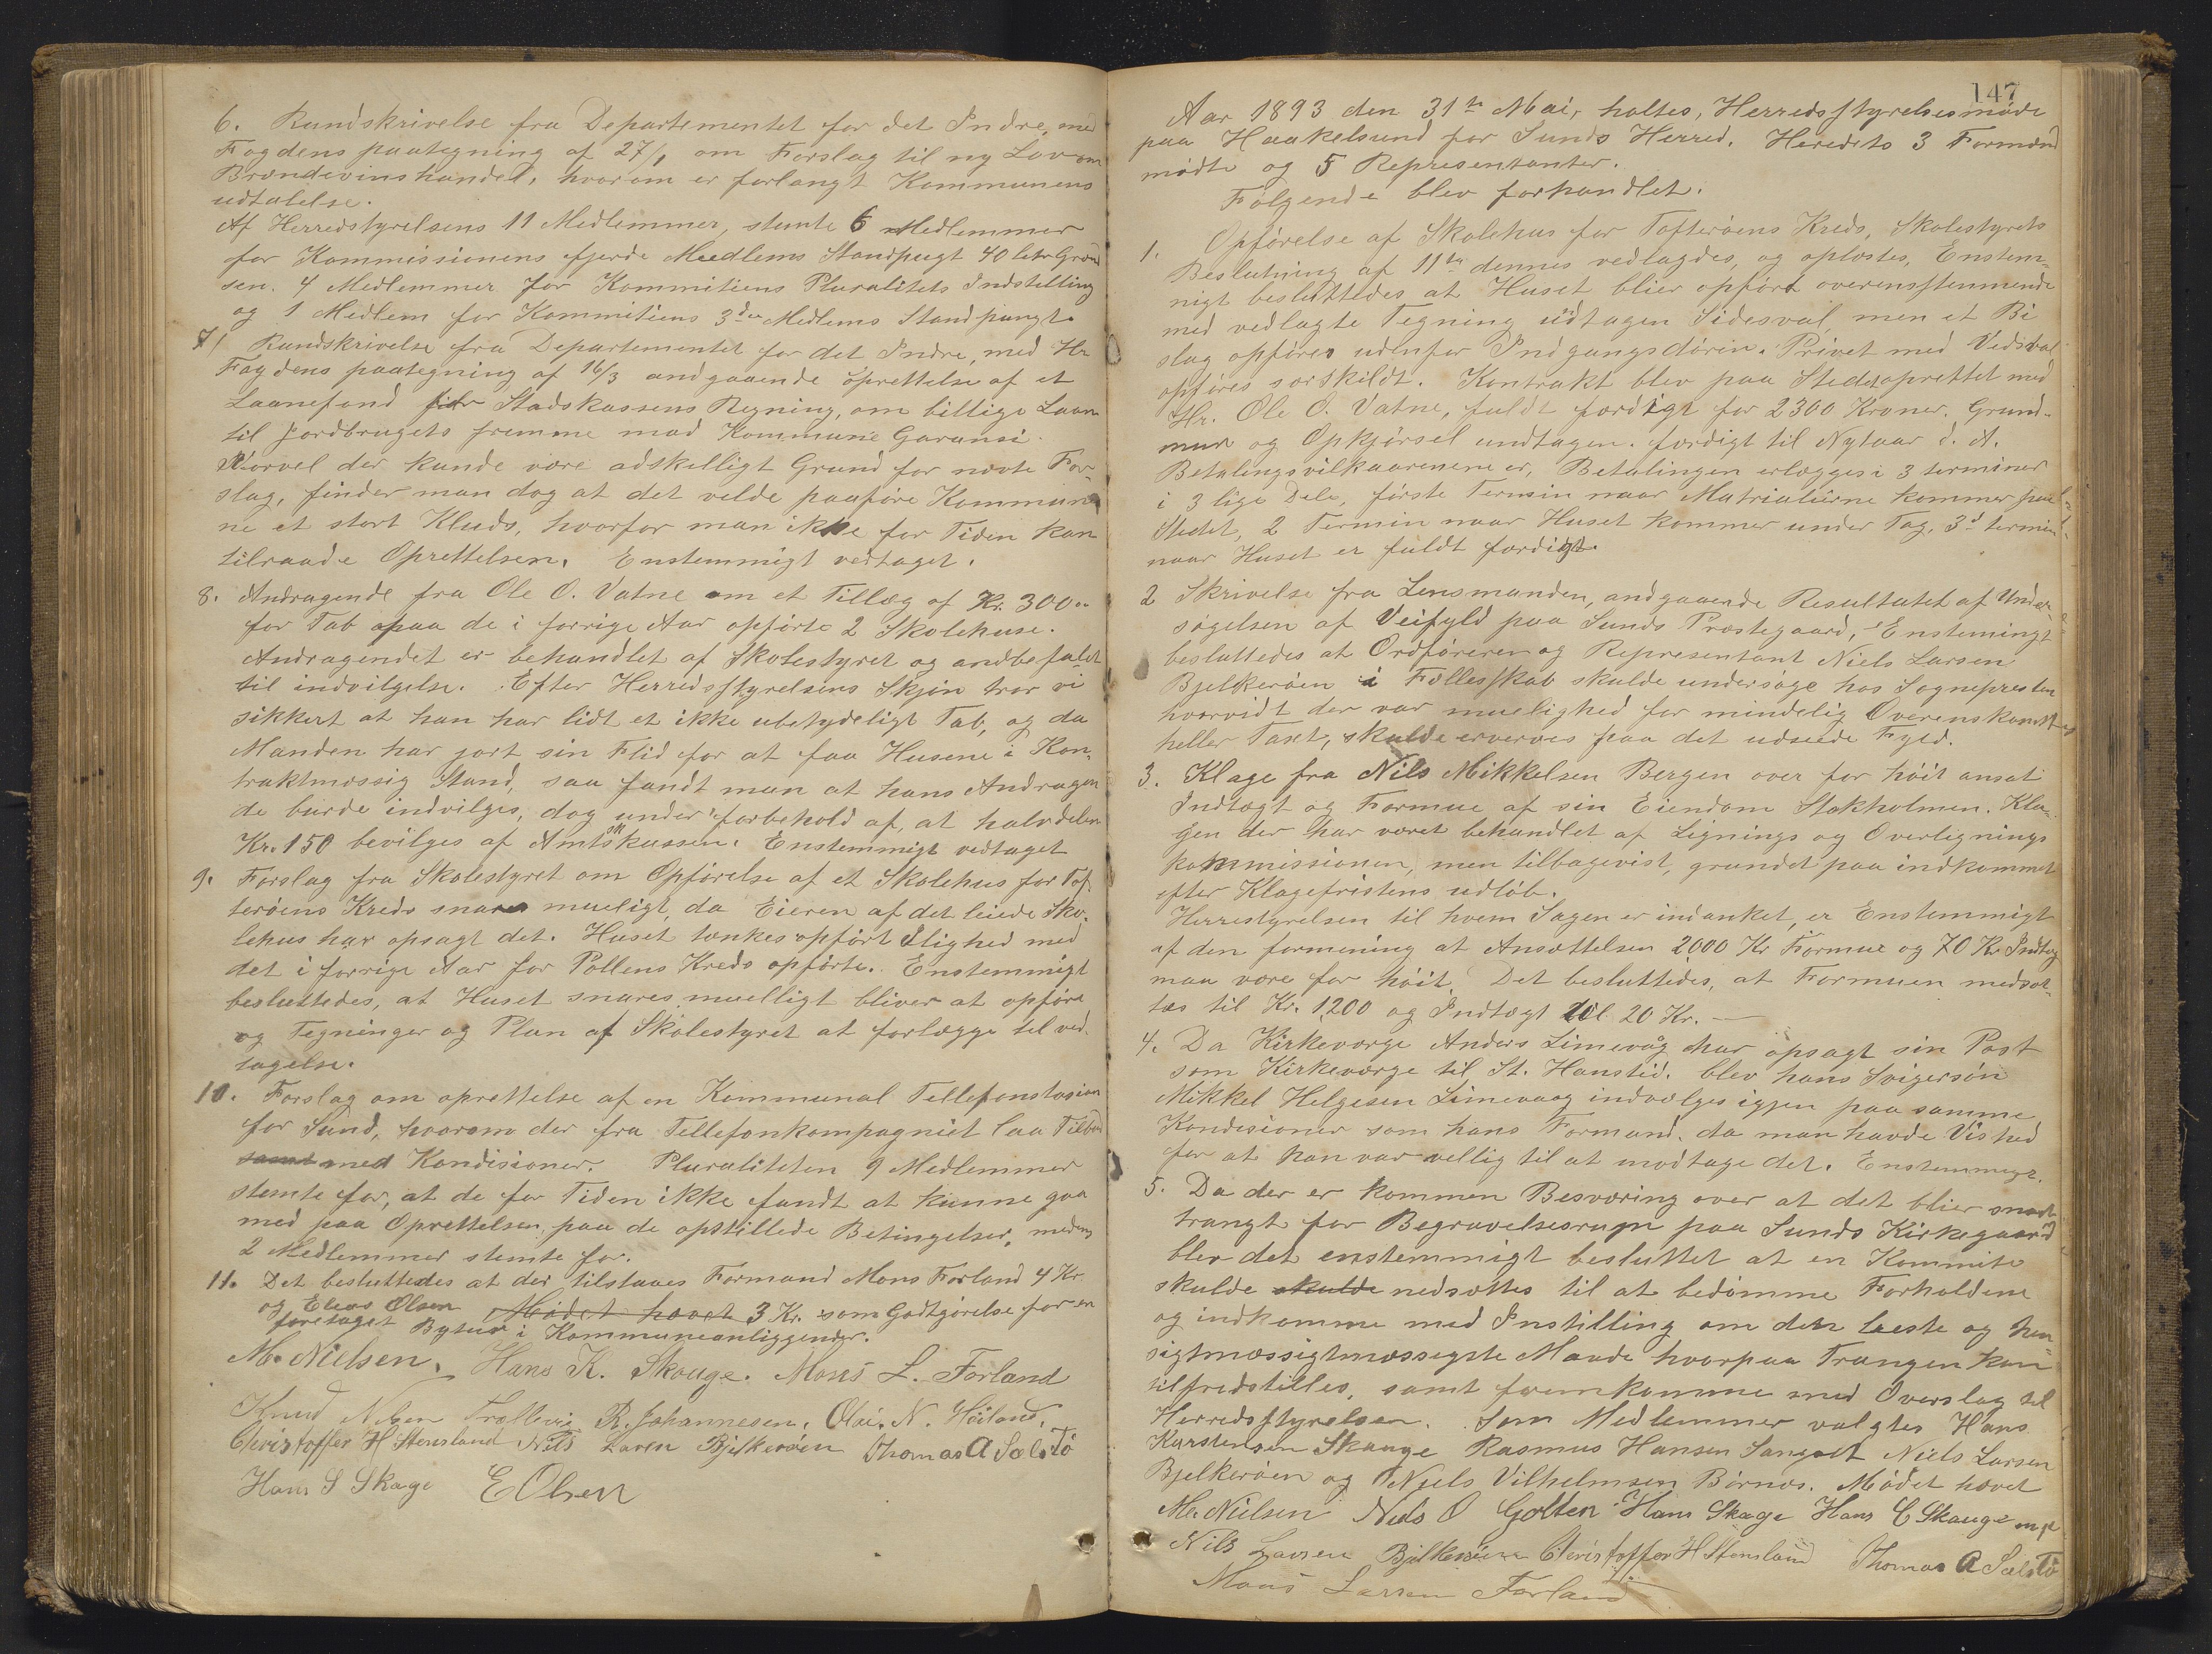 6. Rundskrivelse fra Departementet for det Indre, med
Fogdens paategning af 27/1 om Forslag til ny Lov om
Brændevinshandel, hvorom er forlangt Kommunens
udtalelse.
Af Herredstyrelsens 11 Medlemmer, stemte 6 Medlemmer
for Kommissionens fjerde Medlems Standpugt 40 liter Græn
sen. 4 Medlemmer for Kommitiens Pluralitets Indstilling
og 1 Medlem for Kommitiens 3die Medlems Standpungt.
7. Rundskrivelse fra Departementet for det Indre, med Hr.
Fogdens paategning af 16/3 andgaaende oprettelse af et
Laanefond for Stadskassens Regning, om billige Laan
til Jordbrugets fremme mod Kommune Garansi.
Worvel der kunde være adskelligt Grund for nævte For-
slag, finder man dog at det velde paaføre Kommune
ne et stort Kluds, hvorfor man ikke for Tiden kan
tilraade Oprettelsen. Enstemmigt vedtaget.
8. Andragende fra Ole O. Vatne om et Tillæg af Kr. 300
for Tab paa de i forrige Aar opførte 2 Skolehuse.
Andragendet er behandlet af Skolestyret og andbefalet
til indvilgelse. Efter Herredsstyrelsens Skjøn tror vi
sikkert at han har lidt et ikke ubetydeligt Tab, og da
Manden har gort sin Flid for at faa Husene i Kon-
traktmæssig Stand, saa fandt man at hans Andragen
de burde indvilges, dog under forbehold af, at halvdelen
Kr. 150 bevilges af Amtsskkassen. Enstemmigt vedtaget
9. Forslag fra Skolestyret om Opførelse af et Skolehus for Tof-
terøens Kreds snares mueligt, da Eieren af det leiede Sko-
lehus har opsagt det. Huset tænkes opført i lighed med
det i forrige Aar for Pollens Kreds opførte. Enstemmigt
besluttedes, at Huset snares muelligt bliver at opføre
og Tegninger og Plan af Skolestyret at forlægge til ved-
tagelse.
10. Forslag om oprettelse af en Kommunal Tellefonstasion
for Sund, hvorom der fra Tellefonkompagniet laa Tilbud
samt med Kondisioner. Pluraliteten 9 Medlemmer
stemte for, at de for Tiden ikke fandt at kunne gaa
med paa Oprettelsen paa de opstillede Betingelser, medens
2 Medlemmer stemte for.
11. Det besluttedes at der tilstaaes Formand Mons Forland 4 Kr
og Elias Olsen Mødet hævet 3 Kr. som Godtgjørelse for en
foretaget Bytur i Kommuneanliggender.
M. Nielsen. Hans K. Skouge. Mons L. Forland
Knud Nilsen Trællevig R. Johannesen. Olai. N. Høiland.
Christoffer H Stensland Nils Larsen Bjelkerøen Thomas A Sælstø
Hans S Skage E Olsen
147
Aar 1893 den 31te Mai, holtes, Herredsstyrelsesmøde
paa Haakelsund for Sunds Herred. Heredets 3 Formænd
mødte og 5 Representanter.
Følgende blev forhandlet.
1. Opførelse af Skolehus for Tofterøens Kreds, Skolestyrets
Beslutning af 11te dennes vedlagdes, og oplæstes, Enstem-
nigt besluttedes at Huset blier opført overensstemmende
med vedlagte Tegning udtagen Sidesval, men et Bi
slag opføres udenfor Indgangsdørin. Privet med Vedsval
opføres særskildt. Kontrakt blev paa Stedet oprettet med
Hr. Ole O. Vatne, fuldt færdigt for 2300 Kroner. Grund-
mur og Opkjørsel undtagen. færdigt til Nytaar d. A.
Betalingsvilkaarenene er, Betalingen erlægges i 3 terminer
i 3 lige Dele, første Termin naar Matrialierne kommer paa
Stedet, 2 Termin naar Huset kommer under Tag, 3d termin
naar Huset er fuldt færdigt.
2 Skrivelse fra Lensmanden, andgaaende Resultatet af Under-
søgelsen af Veifyld paa Sunds Præstegaard, Enstemingt
besluttedes at Ordføreren og Representant Niels Larsen
Bjelkerøen i Fællesskab skulde undersøge hos Sognepresten
hvorvidt der var muelighed for mindelig Overenskomst
heller Taxt, skulde erverves paa det udseede Fyld.
3. Klage fra Nils Mikkelsen Bergen over for høit ansat
Indtægt og Formue af sin Eiendom Stokholmen. Kla-
gen der har været behandlet af Lignings og Overlignings
kommissionen, men tilbagevist, grundet paa indkommet
efter Klagefristens udløb.
Herrestyrelsen til hvem Sagen er indanket, er Enstemmigt
af den formening at Ansættelsen 2000 Kr Formue og 70 Kr Indtæg
maa være for høit. Det besluttedes, at Formuen medsæt-
tes til Kr. 1200 og Indtægt til 20 Kr. —
4. Da Kirkeværge Anders Limevåg har opsagt sin Post
som Kirkeværge til St. Hanstid. blev hans Svigersøn
Mikkel Helgesen Limevaag indvælges igjen paa samme
Kondisioner som hans Formand. da man havde Vished
for at han var vellig til at modtage det. Enstemmigt.
5. Da der er kommen Besværing over at det blier snart
trangt for Begravelsesrum paa Sunds Kirkegaard
blev det enstemmigt besluttet at en Kommite
skulde skulde nedsættes til at bedømme Forholdene
og indkomme med Instilling om den beste og hen-
sigtmæssigtmæssigste Maade hvorpaa Trangen kan
tilfredstilles, samt fremkomme med Overslag til
Herredsstyrelsen. Som Medlemmer valgtes Hans
Karstensen Skauge Rasmus Hansen Sangolt Niels Larsen
Bjelkerøen og Niels Vilhelmsen Børnes. Mødet hævet
M. Nielsen Niels O Golten Hans Skage Hans C Skauge
Nils Larsen Bjelkerøen Christoffer H Stensland Thomas A Sælstø
Mons Larsen Forland